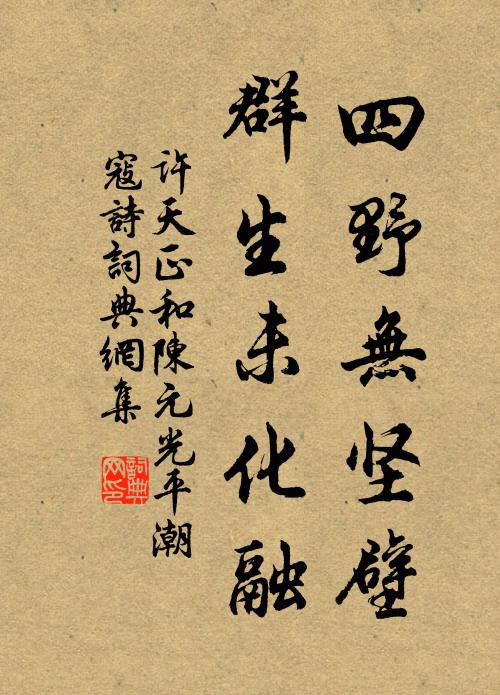 四野無坚壁
群生未化融
许天正和陳元光平潮
寇詩詞典網集
詞典
网印